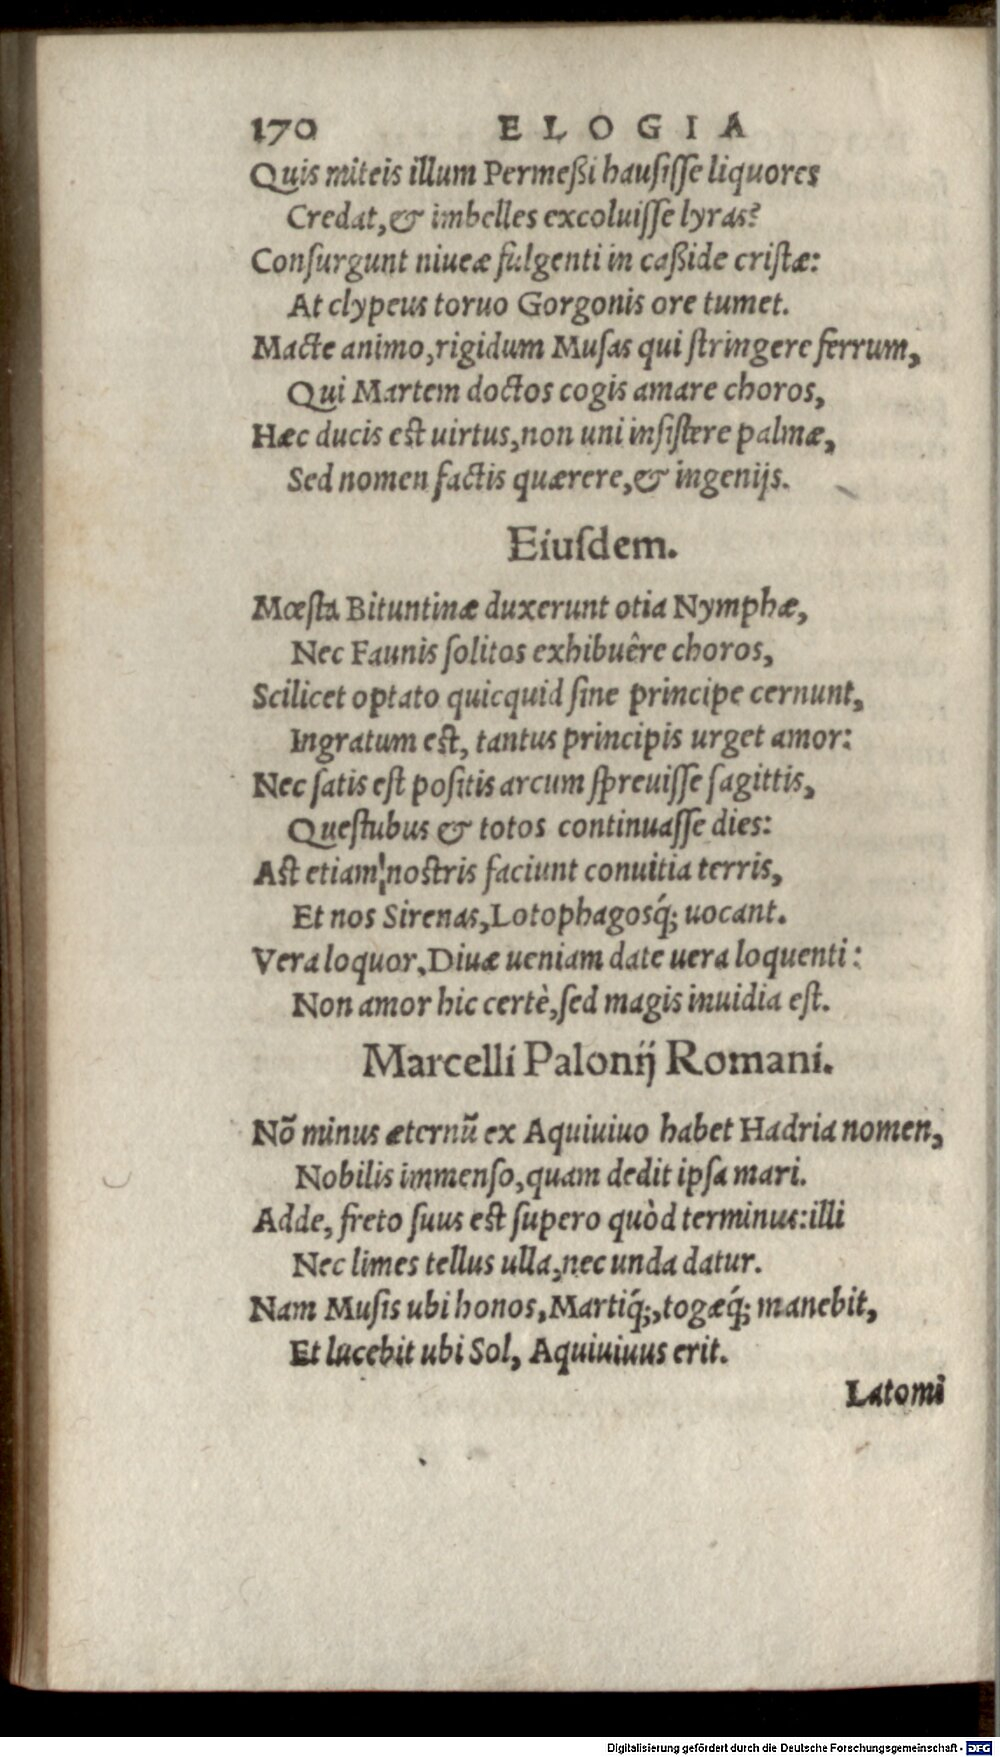 170 ELOGIA
Quis miteis illum Permeßi hauſiſſe liquores
Credat, & imbelles excoluiſſe lyras?
Conſurgunt niueæ fulgenti in caßide criſtæ:
At clypeus toruo Gorgonis ore tumet.
Macte animo, rigidum Muſas qui ſtringere ferrum,
Qui Martem doctos cogis amare choros,
Hæc ducis eſt uirtus, non uni inſiſtere palmæ,
Sed nomen factis quærere, & ingenijs.
Eiuſdem.
Mœſta Bituntinæ duxerunt otia Nymphæ,
Nec Faunis ſolitos exhibuêre choros,
Scilicet optato quicquid ſine principe cernunt,
Ingratum eſt, tantus principis urget amor:
Nec ſatis eſt poſitis arcum ſpreuiſſe ſagittis,
Queſtubus & totos continuaſſe dies:
Aſt etiam noſtris faciunt conuitia terris,
Et nos Sirenas, Lotophagosq́; uocant.
Vera loquor, Diuæ ueniam date uera loquenti:
Non amor hic certè, ſed magis inuidia eſt.
Marcelli Palonij Romani.
Nõ minus æternũ ex Aquiuiuo habet Hadria nomen,
Nobilis immenſo, quam dedit ipſa mari.
Adde, freto ſuus eſt ſupero quòd terminus: illi
Nec limes tellus ulla, nec unda datur.
Nam Muſis ubi honos, Martiq́;, togæq́; manebit,
Et lucebit ubi Sol, Aquiuiuus erit.
Latomi
Digitalisierung gefördert durch die Deutsche Forschungsgemeinschaft - DFG